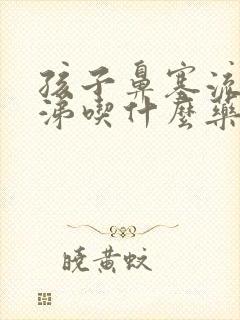 孩子鼻塞流
涕喫什麼藥
曉黃蚊